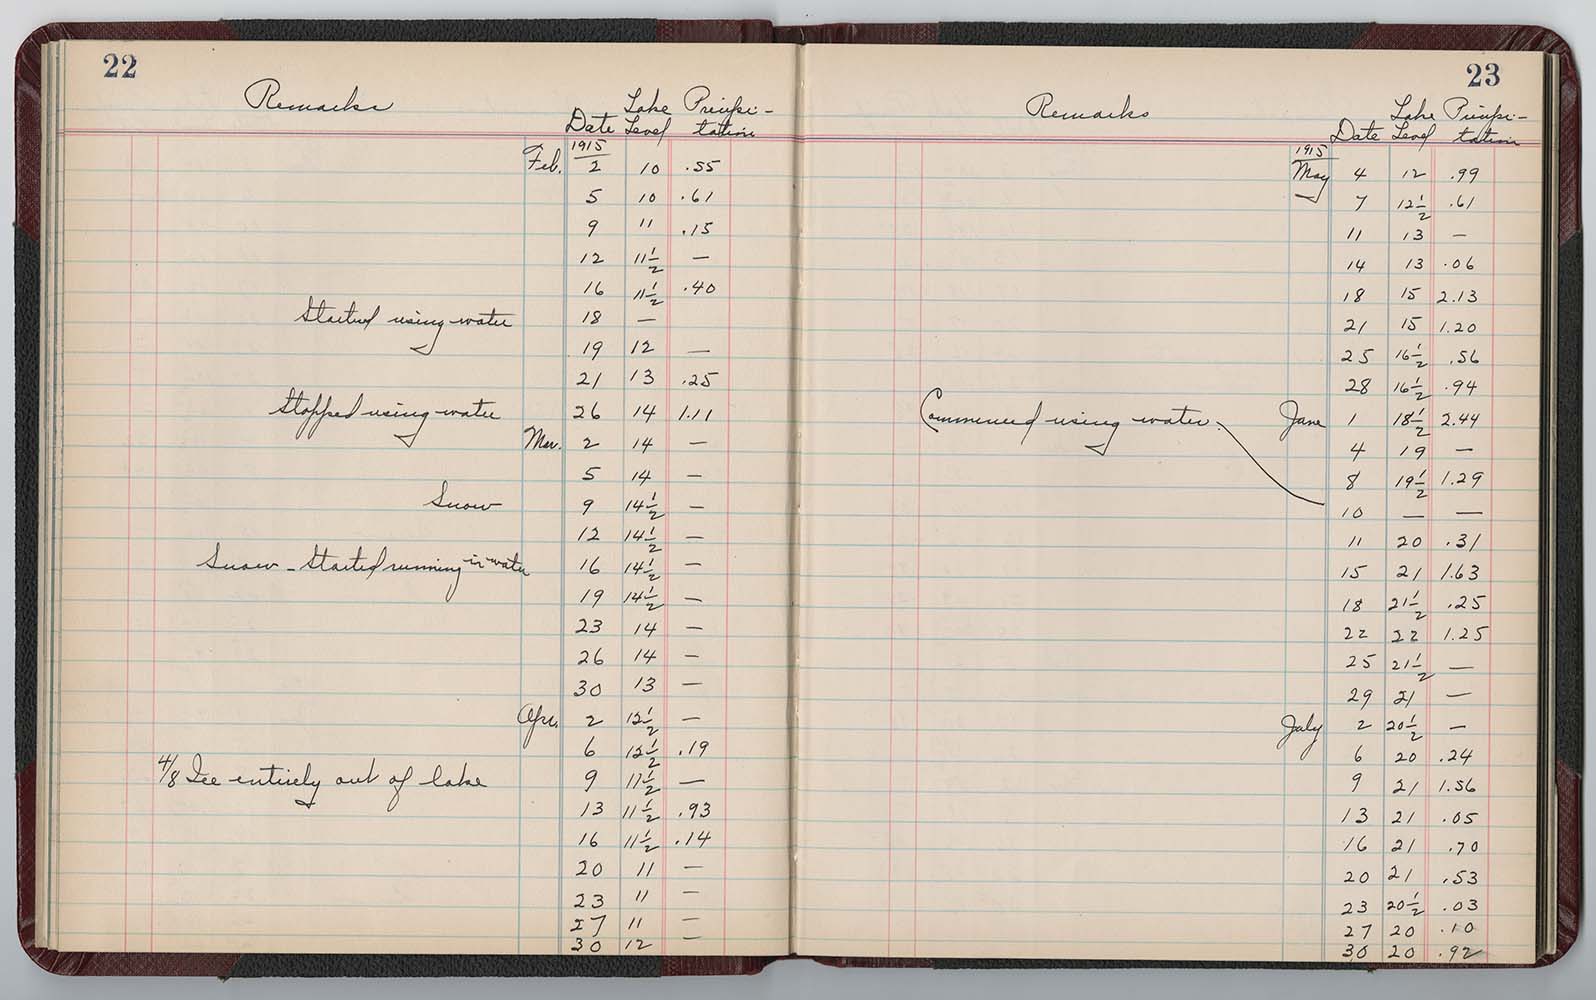 22
Remarks Date Lake Level Precipitation
1915
Feb. 2 10 .55
5 10 .61
9 11 .15
12 11 1/2 —
16 11 1/2 .40
Started using water 18 —
19 12 —
21 13 .25
Stopped using water 26 14 1.11
Mar. 2 14 —
5 14 —
Snow 9 14 1/2 —
12 14 1/2 —
Snow - Started running in water 16 14 1/2 —
19 14 1/2 —
23 14 —
26 14 —
30 13 —
Apr. 2 12 1/2 —
6 12 1/2 .19
4/8 Ice entirely out of lake 9 11 1/2 —
13 11 1/2 .93
16 11 1/2 .14
20 11 —
23 11 —
27 11 —
30 12 —
23
Remarks Date Lake Level Precipitation
1915
May 4 12 .99
7 12 1/2 .61
11 13 —
14 13 .06
18 15 2.13
21 15 1.20
25 16 1/2 .56
28 16 1/2 .94
Commenced using water. June 1 18 1/2 2.44
4 19 —
8 19 1/2 1.29
10 — —
11 20 .31
15 21 1.63
18 21 1/2 .25
22 22 1.25
25 21 1/2 —
29 21 —
July 2 20 1/2 —
6 20 .24
9 21 1.56
13 21 .05
16 21 .70
20 21 .53
23 20 1/2 .03
27 20 .10
30 20 .92